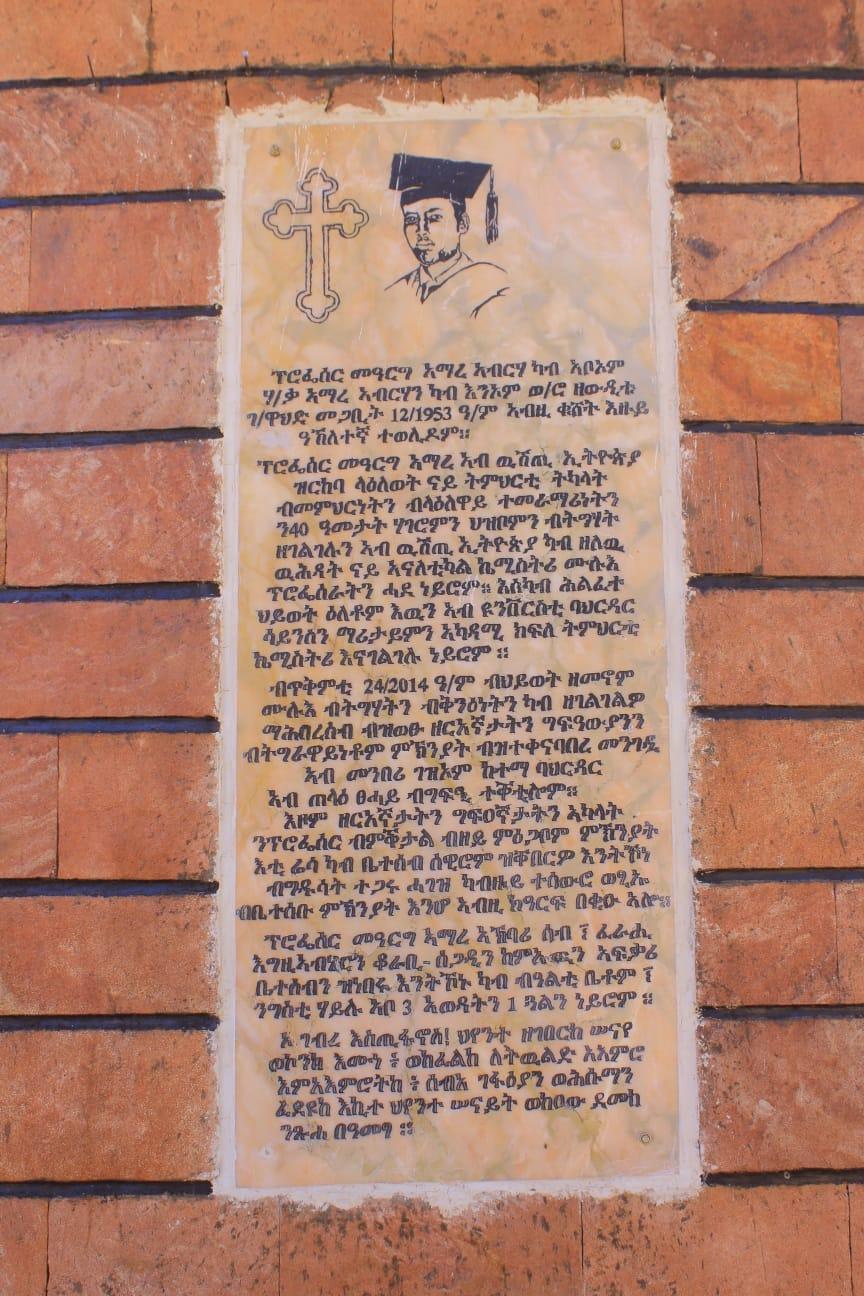 ፕሮፌሰር መዓርግ ኣማረ ኣብርሃ ካብ ኣቦኦም
ሃ/ቃ ኣማረ ኣብርሃን ካብ እንኦም ወ/ሮ ዘውዲቱ
ገ/ዋህድ መጋቢት 12/1953 ዓ/ም ኣብዚ ቁሸት እዙይ
ዓኸለተኛ ተወሊዶም።
ፕሮፌሰር መዓርግ ኣማረ ኣብ ዉሽጢ ኢትዮጵያ
ዝርከባ ላዕለወት ናይ ትምህርቲ ትካላት
ብመምህርነትን ብላዕለዋይ ተመራማሪነትን
ን40 ዓመታት ሃገሮምን ህዝቦምን ብትግሃት
ዘገልገሉን ኣብ ዉሽጢ ኢትዮጵያ ካብ ዘለዉ
ዉሕዳት ናይ ኣናለቲካል ኬሚስትሪ ሙሉእ
ፕሮፌሰራትን ሓደ ነይሮም። እስካብ ሕልፈተ
ህይወት ዕለቶም እዉን ኣብ ዩንቨርስቲ ባህርዳር
ሳይንስን ማሪታይምን ኣካዳሚ ክፍለ ትምህርቲ
ኬሚስትሪ እናገልገሉ ነይሮም ።
ብጥቅምቲ 24/2014 ዓ/ም ብህይወት ዘመኖም
ሙሉእ ብትግሃትን ብቅንዕነትን ካብ ዘገልገልዎ
ማሕበረሰብ ብዝወፁ ዘርኣኛታትን ግፍዓውያንን
ብትግራዋይነቶም ምኽንያት ብዝተቀናባበረ መንገዲ
ኣብ መንበሪ ገዝኦም ከተማ ባህርዳር
ኣብ ጠላዕ ፀሓይ ብግፍዒ ተቐቲሎም።
እዞም ዘርኣኛታትን ግፍዐኛታትን ኣካላት
ንፕሮፌሰር ብምቕታል ብዘይ ምዕጋቦም ምኽንያት
እቲ ሬሳ ካብ ቤተሰብ ሰዊሮም ዝቐበርዎ እንትኾን
ብግዱሳት ተጋሩ ሓገዝ ካብዝይ ተሰውሮ ወፂኡ
ብቤተሰቡ ምኽንያት እንሆ ኣብዚ ክዓርፍ በቂዑ ኣሎ።
ፕሮፌሰር መዓርግ ኣማረ ኣኽባሪ ሰብ ፣ ፈራሒ
እግዚኣብሄርን ቆራቢ- ሰጋዲን ከምኡዉን ኣፍቃሪ
ቤተሰብን ዝነበሩ እንትኾኑ ካብ ብዓልቲ ቤቶም ፣
ንግስቲ ሃይሉ ኣቦ 3 ኣወዳትን 1 ጓልን ነይሮም ።
ኦ ገብረ እስጢፋኖስ! ህየንተ ዘገበርከ ሠናየ
ወኮንከ እሙነ ፥ ወከፈልከ ለትዉልድ አእምሮ
እምአእምሮትከ ፥ ሰብአ ገፋዕያን ወሕሱማን
ፈደዩከ እኪተ ህየንተ ሠናይት ወከዐው ደመከ
ንጹሐ በዓመፃ ።